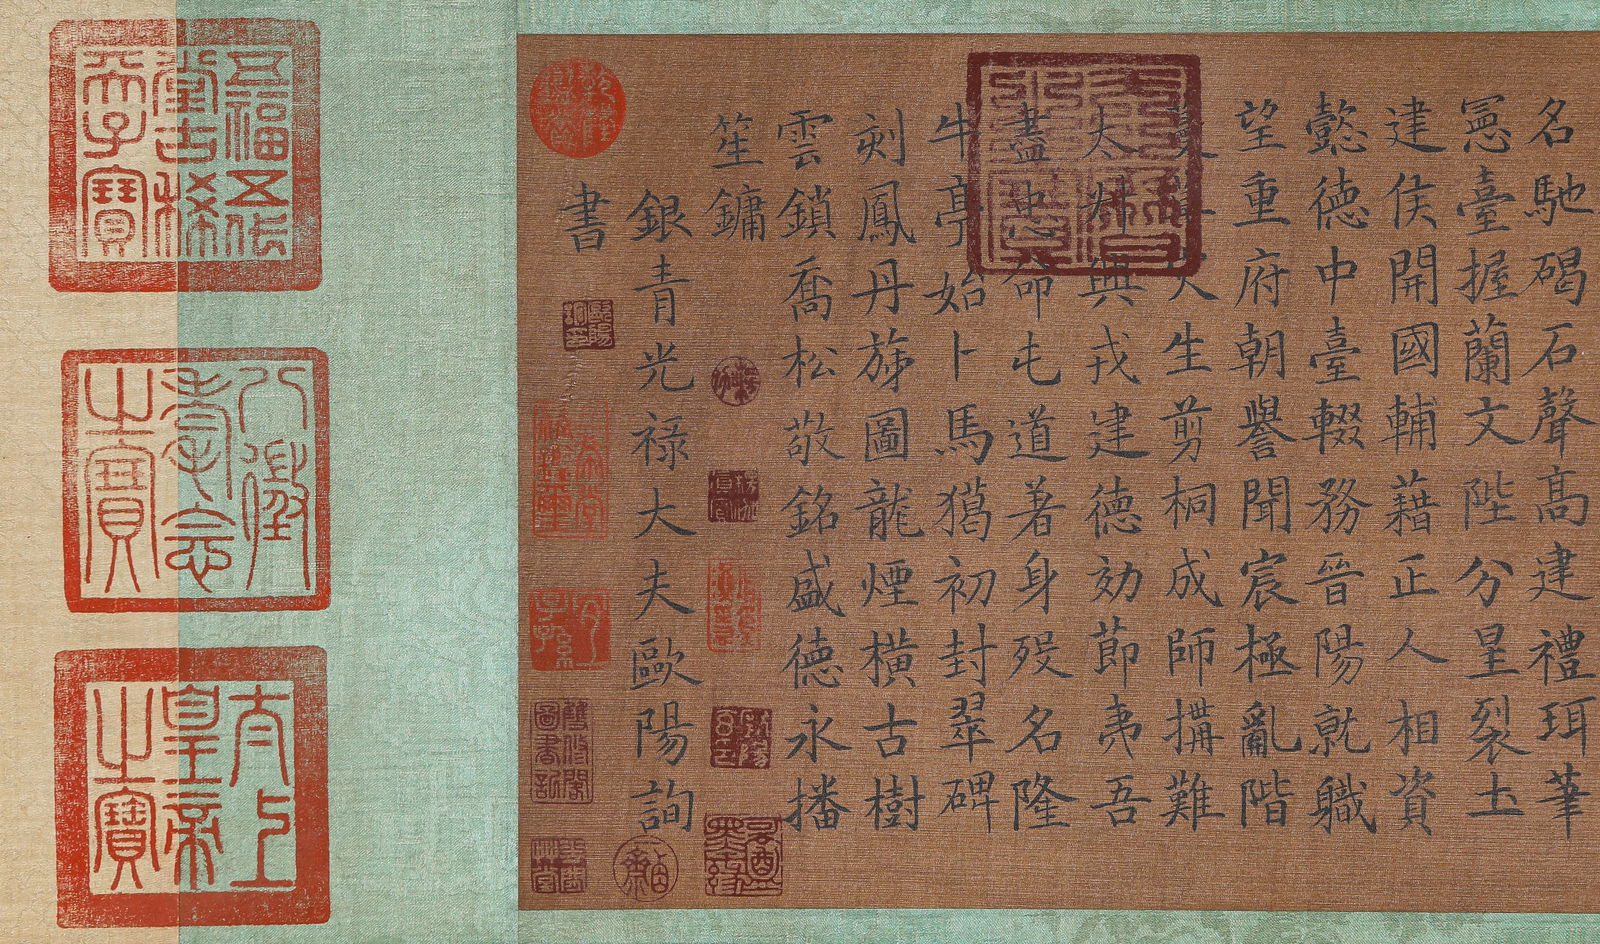 名馳碣石聲高建禮珥筆
憲臺握蘭文陛分星裂土
建侯開國輔藉正人相資
懿德中臺輟務晉陽就職
望重府朝譽聞宸極亂階
災生剪桐成師搆難
太叔興戎建德効節夷吾
盡忠命屯道著身歿名隆
牛亭始卜馬獦初封翠碑
刻鳳丹旐圖龍煙橫古樹
雲鎖喬松敬銘盛德永播
笙鏞
銀青光祿大夫歐陽詢
書
乾隆鑑賞
三希堂精鑑璽
宜子孫
五福五代堂古稀天子寶
八徵耄念之寶
太上皇帝之寶